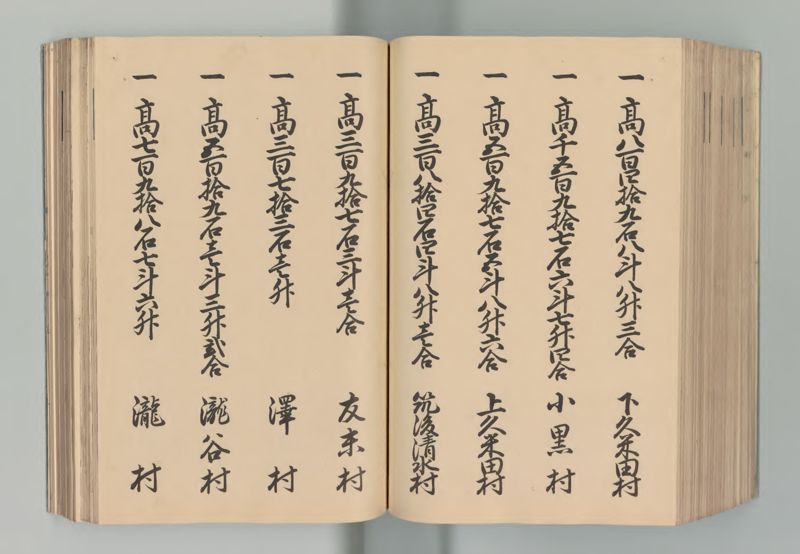 一 高八百四拾九石八斗八升三合 下久米田村
一 高千五百九拾七石六斗七升四合 小黒村
一 高五百九拾七石五斗八升六合 上久米田村
一 高三百八拾四石四斗八升壱合 筑後清水村
一 高三百九拾七石三斗壱合 友末村
一 高三百七拾三石壱升 澤村
一 高五百拾九石壱斗三升弐合 瀧谷村
一 高七百九拾八石七斗六升 瀧村